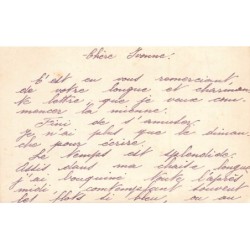 Chère Yvonne.
C'est en vous remerciant
de votre longue et charman
te lettre, que je veux com
mencer la mienne.
Fini de s'amuser.
Je n'ai plus que le diman
che pour écrire.
Le temps est splendide.
Assis dans ma chaise longue
j'ai bouquiné toute l'après
midi contemplant souvent
les flots si bleu, ou au